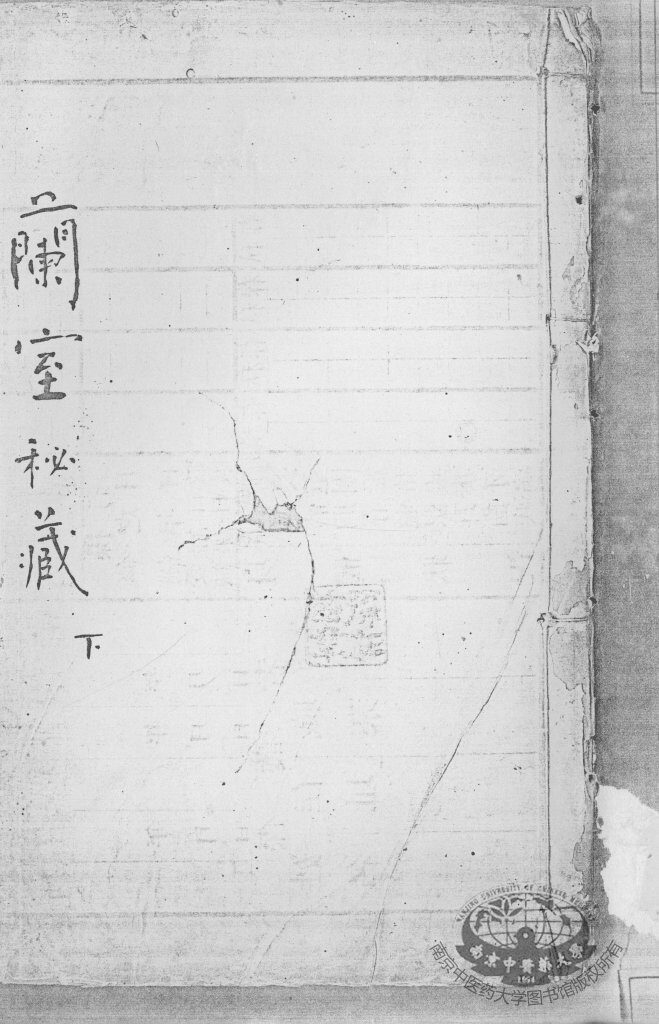 蘭室秘藏
下
NANJING UNIVERSITY OF CHINESE MEDICINE
南京中醫藥大學
1954
南京中医药大学图书馆版权所有